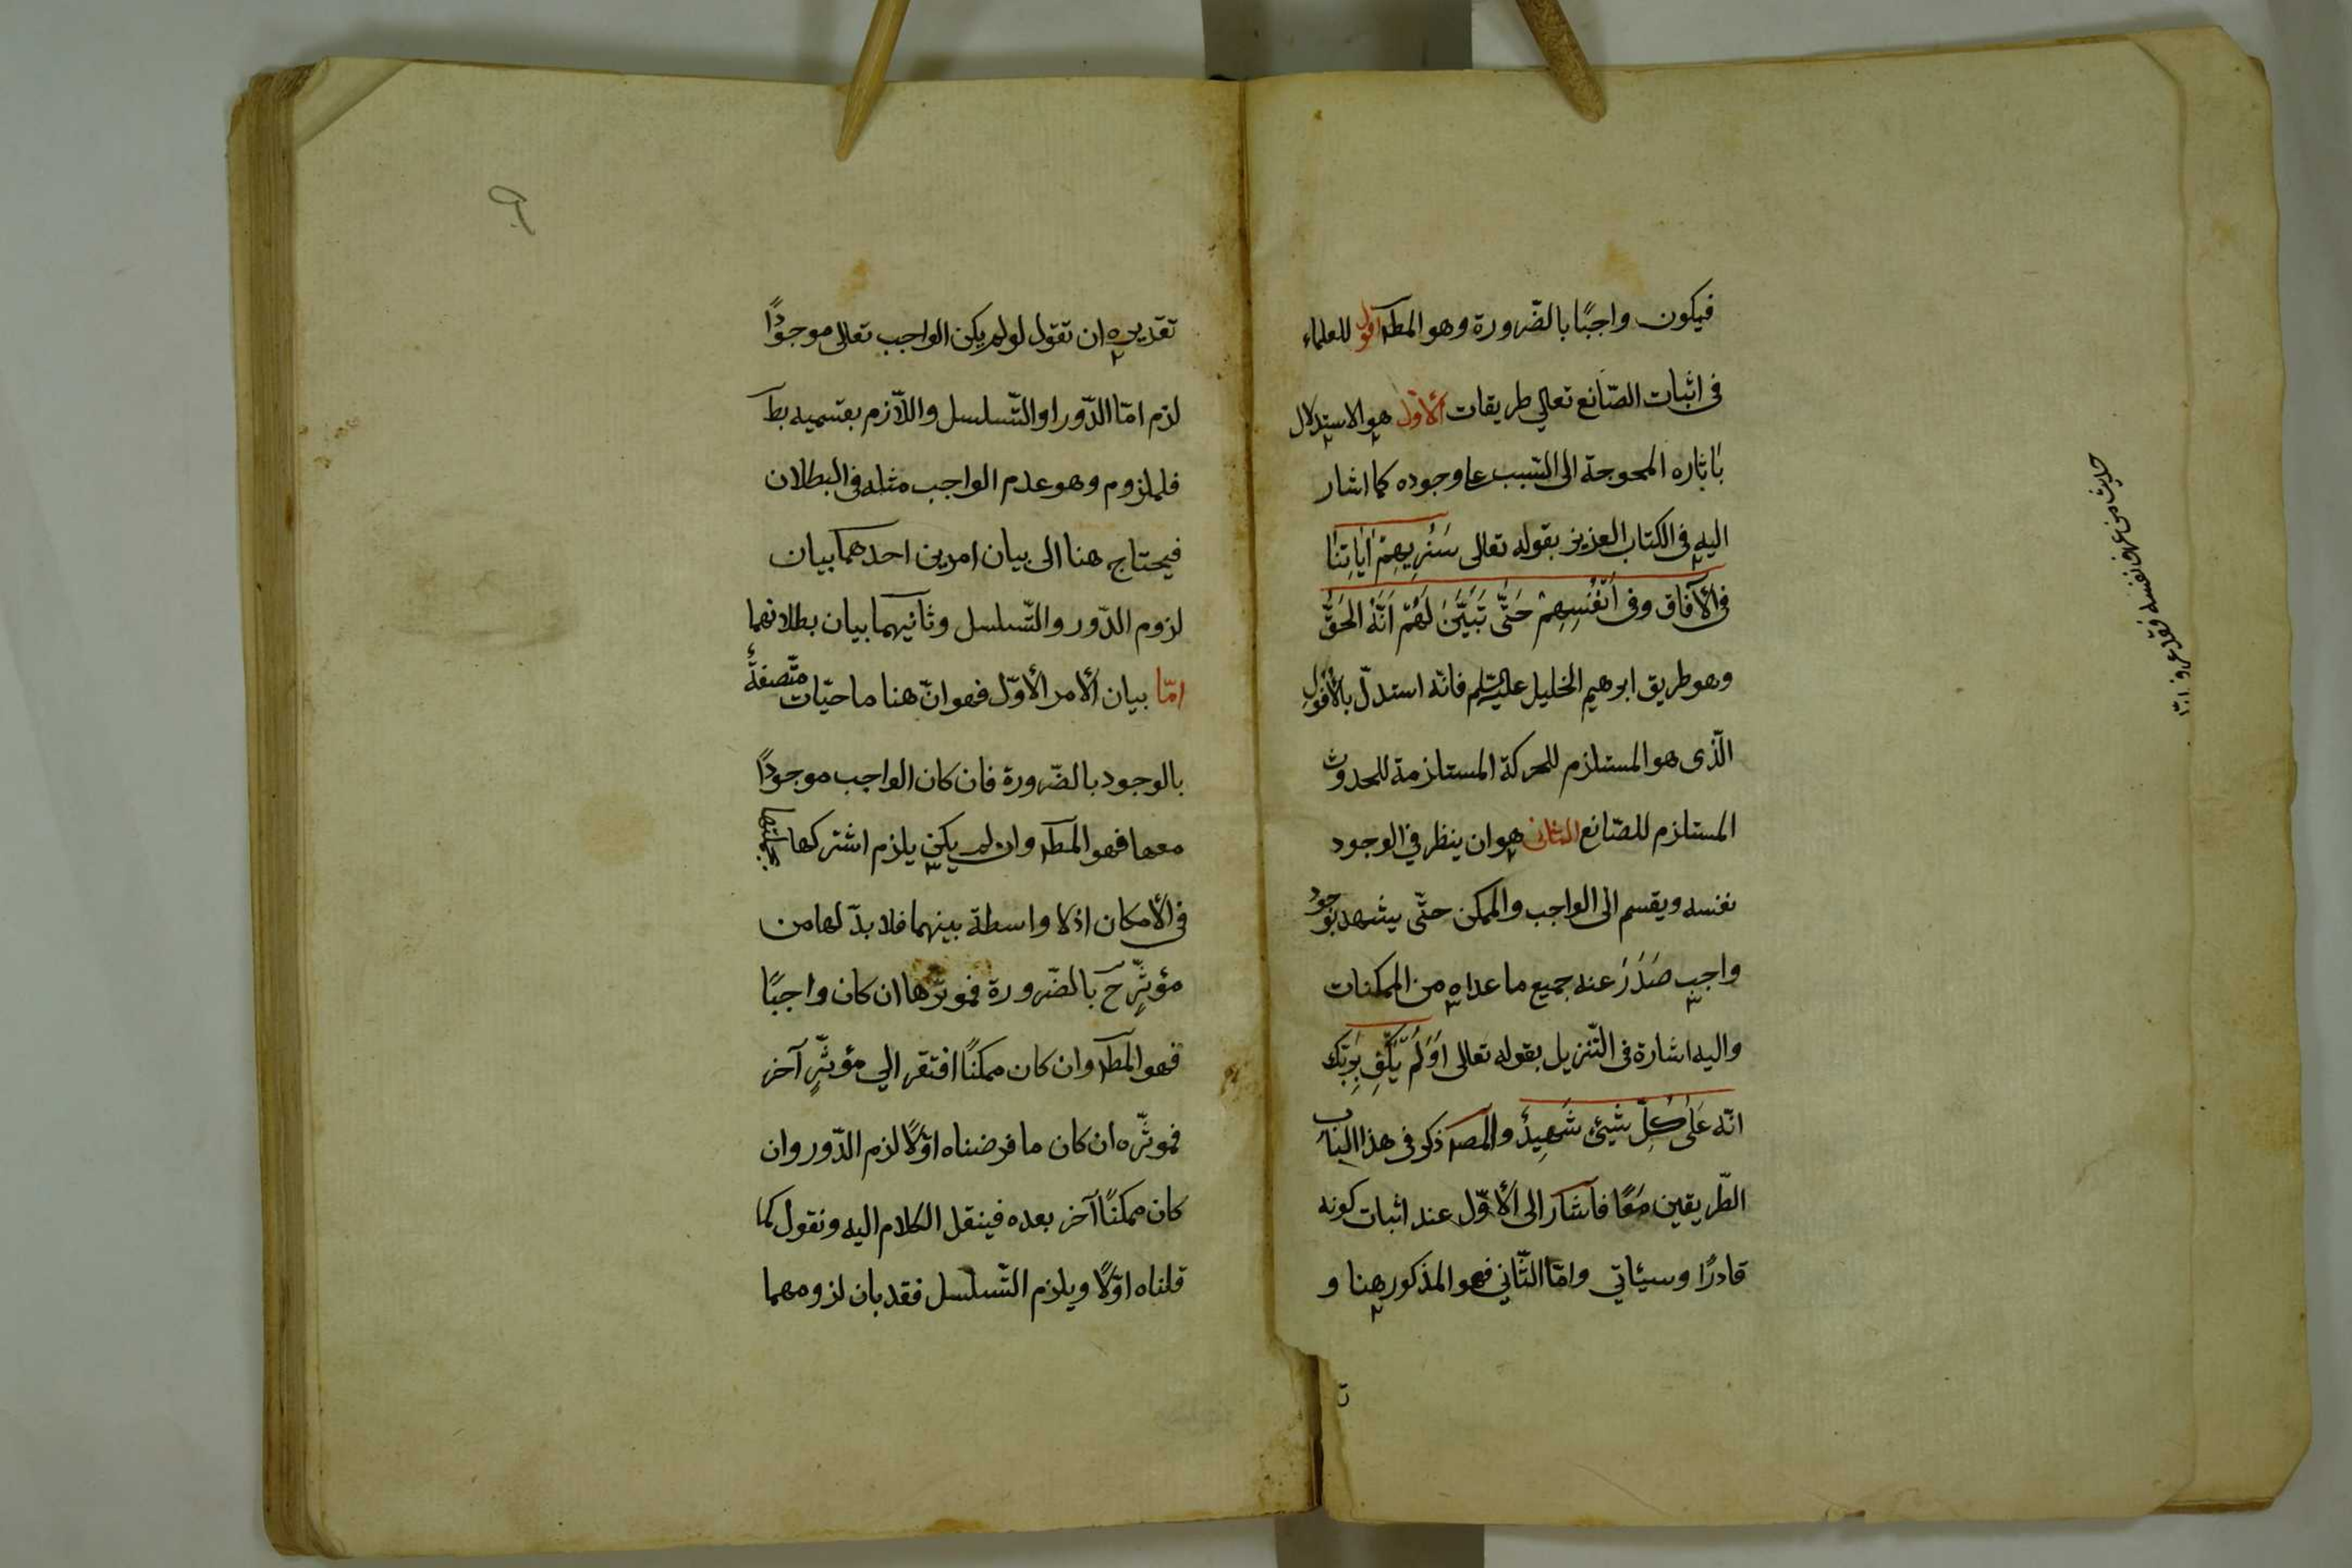 فيكون واجبًا بالضّرورة وهو المطـ اقول للعلماء
فى اثبات الصّانع تعالي طريقات الأوّل هو الاستدلال
بآثاره المحوجة الى السّبب على وجوده كما اشار
اليه فى الكتاب العزيز بقوله تعالى سَنُرِيهِمْ اٰيَاتِنَا
فى الآفاق وفى اَنْفُسِهِمْ حَتّٰى تَبَيَّنَ لَهُمْ اَنَّهُ الحَقُّ
وهو طريق ابرهيم الخليل عليه السّلم فانّه استدلّ بالأفولِ
الّذى هو المستلزم للحركة المستلزمة للحدوث
المستلزم للصّانع الثانى هو ان ينظر في الوجود
نفسه ويقسم الى الواجب والممكن حتّى يشهد بوجود
واجب صَدَرَ عنه جميع ما عداه من الممكنات
واليه اشارة فى التّنزيل بقوله تعالى اَوَلَمْ يَكْفِ بِرَبِّكَ
انّه عَلىٰ كُلِّ شَيْئٍ شَهِيدٌ والمصـ ذكر فى هذا الباب
الطّريقين مَعًا فاشار الى الأوّل عند اثبات كونه
قادرًا وسيئاتي وامّا الثّاني فهو المذكور هنا و
حديث من عرف نفسه فقد عرف ربّه
٩
تقديره ان تقول لو لم يكن الواجب تعالى موجودًا
لزم امّا الدّور او التّسلسل واللاّزم بقسميه بط
فلملزوم وهو عدم الواجب مثله فى البطلان
فيحتاج هنا الى بيان امرين احدهما بيان
لزوم الدّور والتّسلسل وثانيهما بيان بطلانهما
امّا بيان الأمر الأوّل فهو انّ هنا ماحيّات متّصفةٌ
بالوجود بالضّرورة فان كان الواجب موجودًا
معها فهو المطـ وان لم يكن يلزم اشتركها
فى الأمكان اذ لا واسطة بينهما فلا بدّ لها من
مؤثّرٍ حَ بالضّرورة فموثّرها ان كان واجبًا
فهو المطـ وان كان ممكنًا افتقر الي مؤثّرٍ آخر
فموثّره ان كان ما فرضناه اوّلاً لزم الدّور وان
كان ممكنًا آخر بعده فينقل الكلام اليه ونقول كما
قلناه اوّلاً ويلزم التّسلسل فقد بان لزومهما